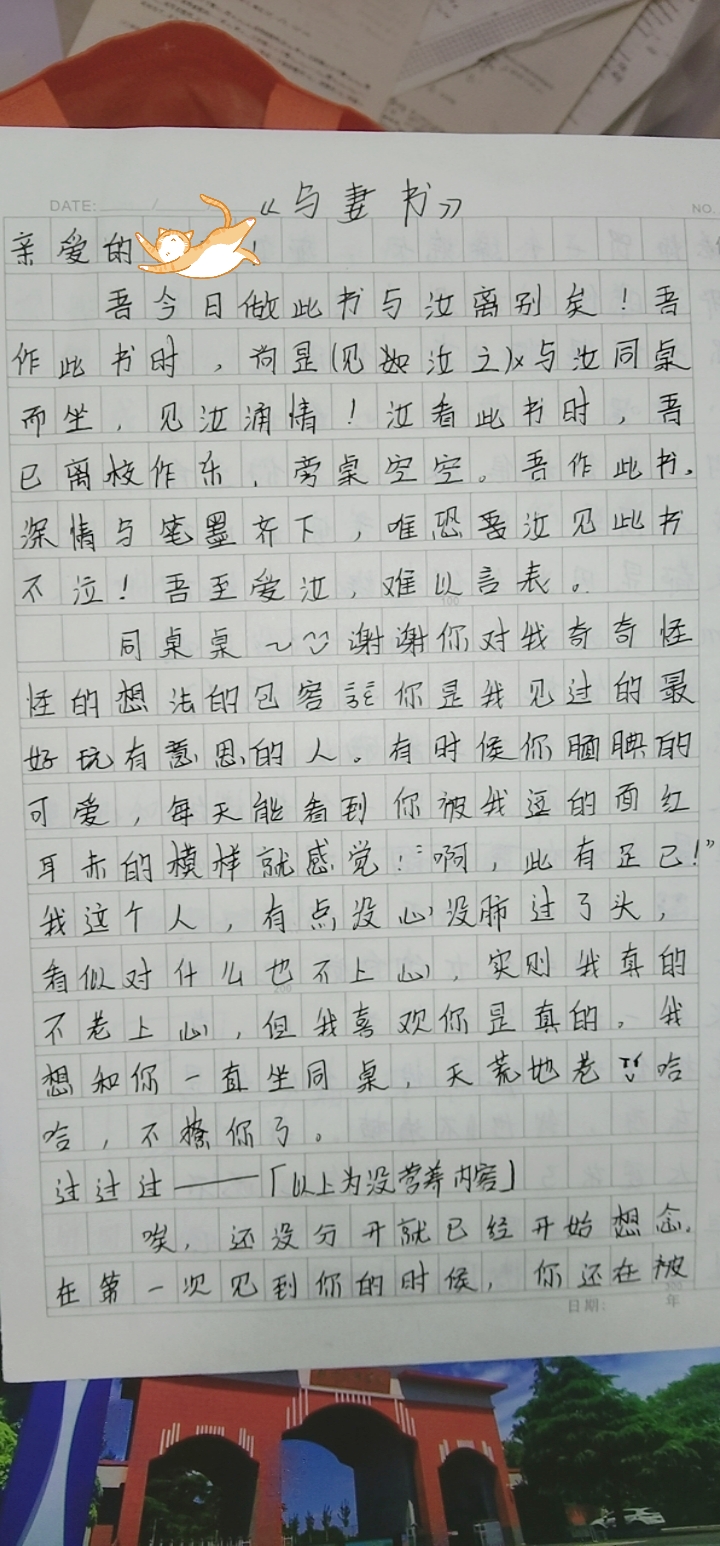 DATE: / 《与妻书》 NO.
亲爱的 !
吾今日做此书与汝离别矣！吾
作此书时，尚是(见如汝之)x与汝同桌
而坐，见汝涌情！汝看此书时，吾
已离校作乐，旁桌空空。吾作此书，
深情与笔墨齐下，唯恐吾汝见此书
不泣！吾至爱汝，难以言表。
100
同桌桌～谢谢你对我奇奇怪
怪的想法的包容 你是我见过的最
好玩有意思的人。有时候你腼腆的
可爱，每天能看到你被我逗的面红
耳赤的模样就感觉：“啊，此有足已！”
我这个人，有点没心没肺过了头，
看似对什么也不上心，实则我真的
不老上心，但我喜欢你是真的。我
想和你一直坐同桌，天荒地老 哈
哈，不撩你了。
过过过——「以上为没营养内容」
唉，还没分开就已经开始想念。
在第一次见到你的时候，你还在被
日期: 年